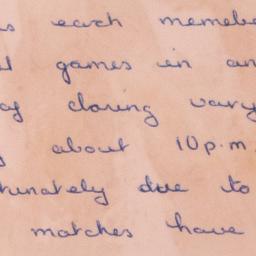 each memebe
games in an
closing vary
about 10 p.m.
tunately due to
matches have